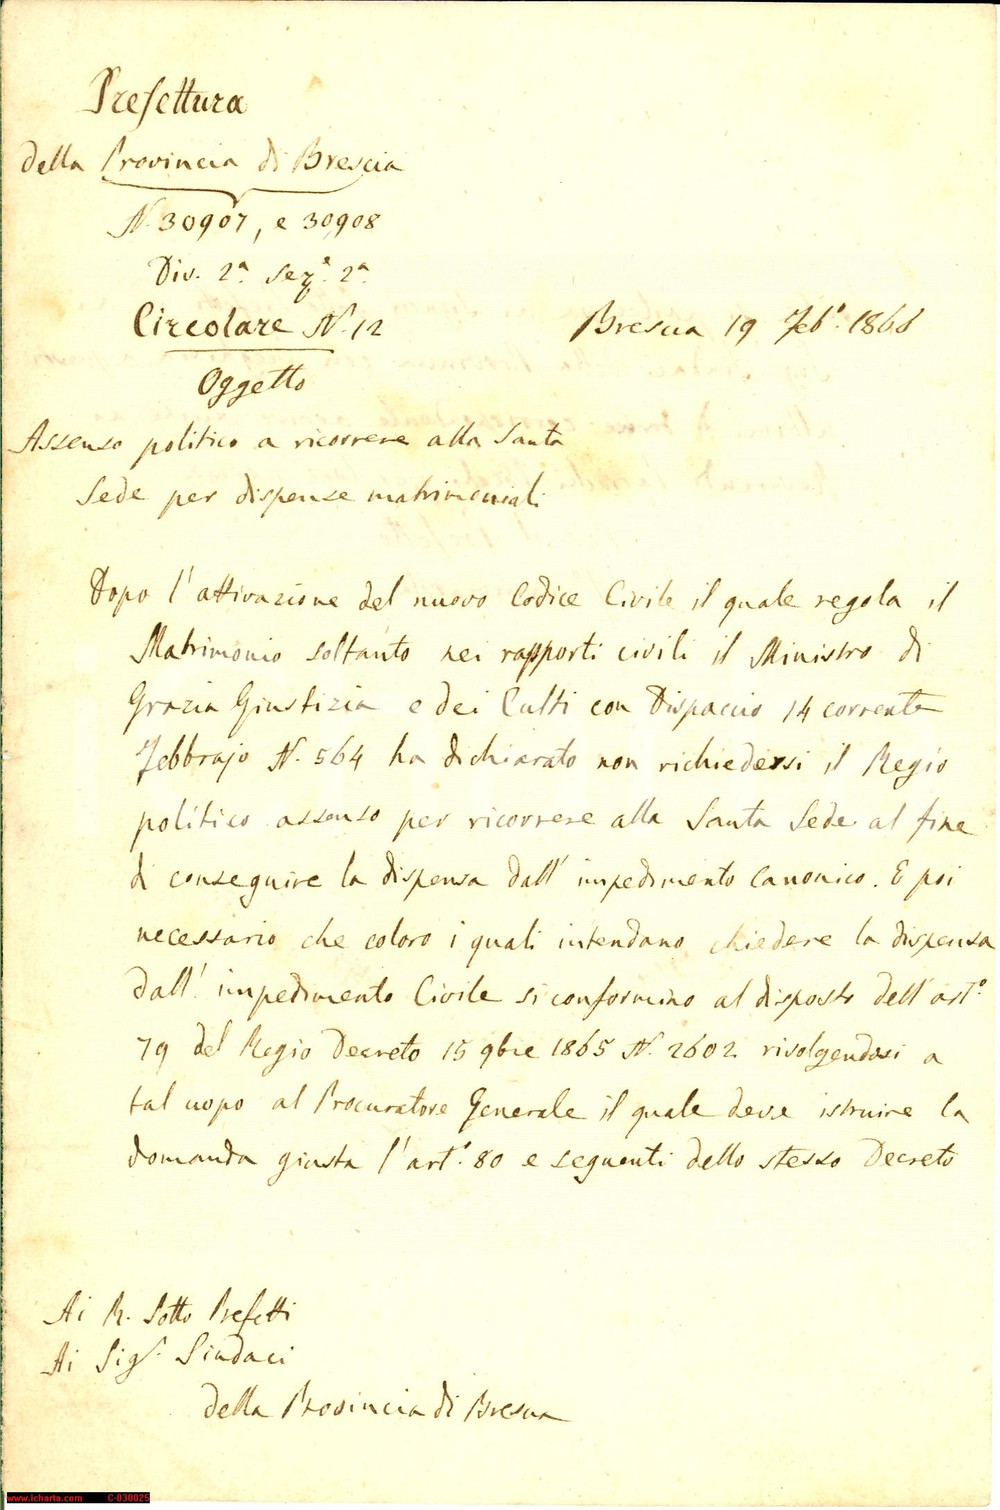 Prefettura
della Provincia di Brescia
N. 30907, e 30908
Div. 2ª Sezª 2ª
Circolare N. 12
Brescia 19 Febº 1866
Oggetto
Assenso politico a ricorrere alla Santa
Sede per dispense matrimoniali
Dopo l'attivazione del nuovo Codice Civile il quale regola il
Matrimonio soltanto nei rapporti civili il Ministro di
Grazia Giustizia e dei Culti con Dispaccio 14 corrente
Febbrajo N. 564 ha dichiarato non richiedersi il Regio
politico assenso per ricorrere alla Santa Sede al fine
di conseguire la dispensa dall' impedimento canonico. E poi
necessario che coloro i quali intendano chiedere la dispensa
dall' impedimento Civile si conformino al disposto dell'artº
79 del Regio Decreto 15 9bre 1865 N. 2602 rivolgendosi a
tal uopo al Procuratore Generale il quale deve istruire la
domanda giusta l'artº 80 e seguenti dello stesso Decreto
Ai R. Sotto Prefetti
Ai Sigʳ. Sindaci
della Provincia di Brescia
www.icharta.com C-030025